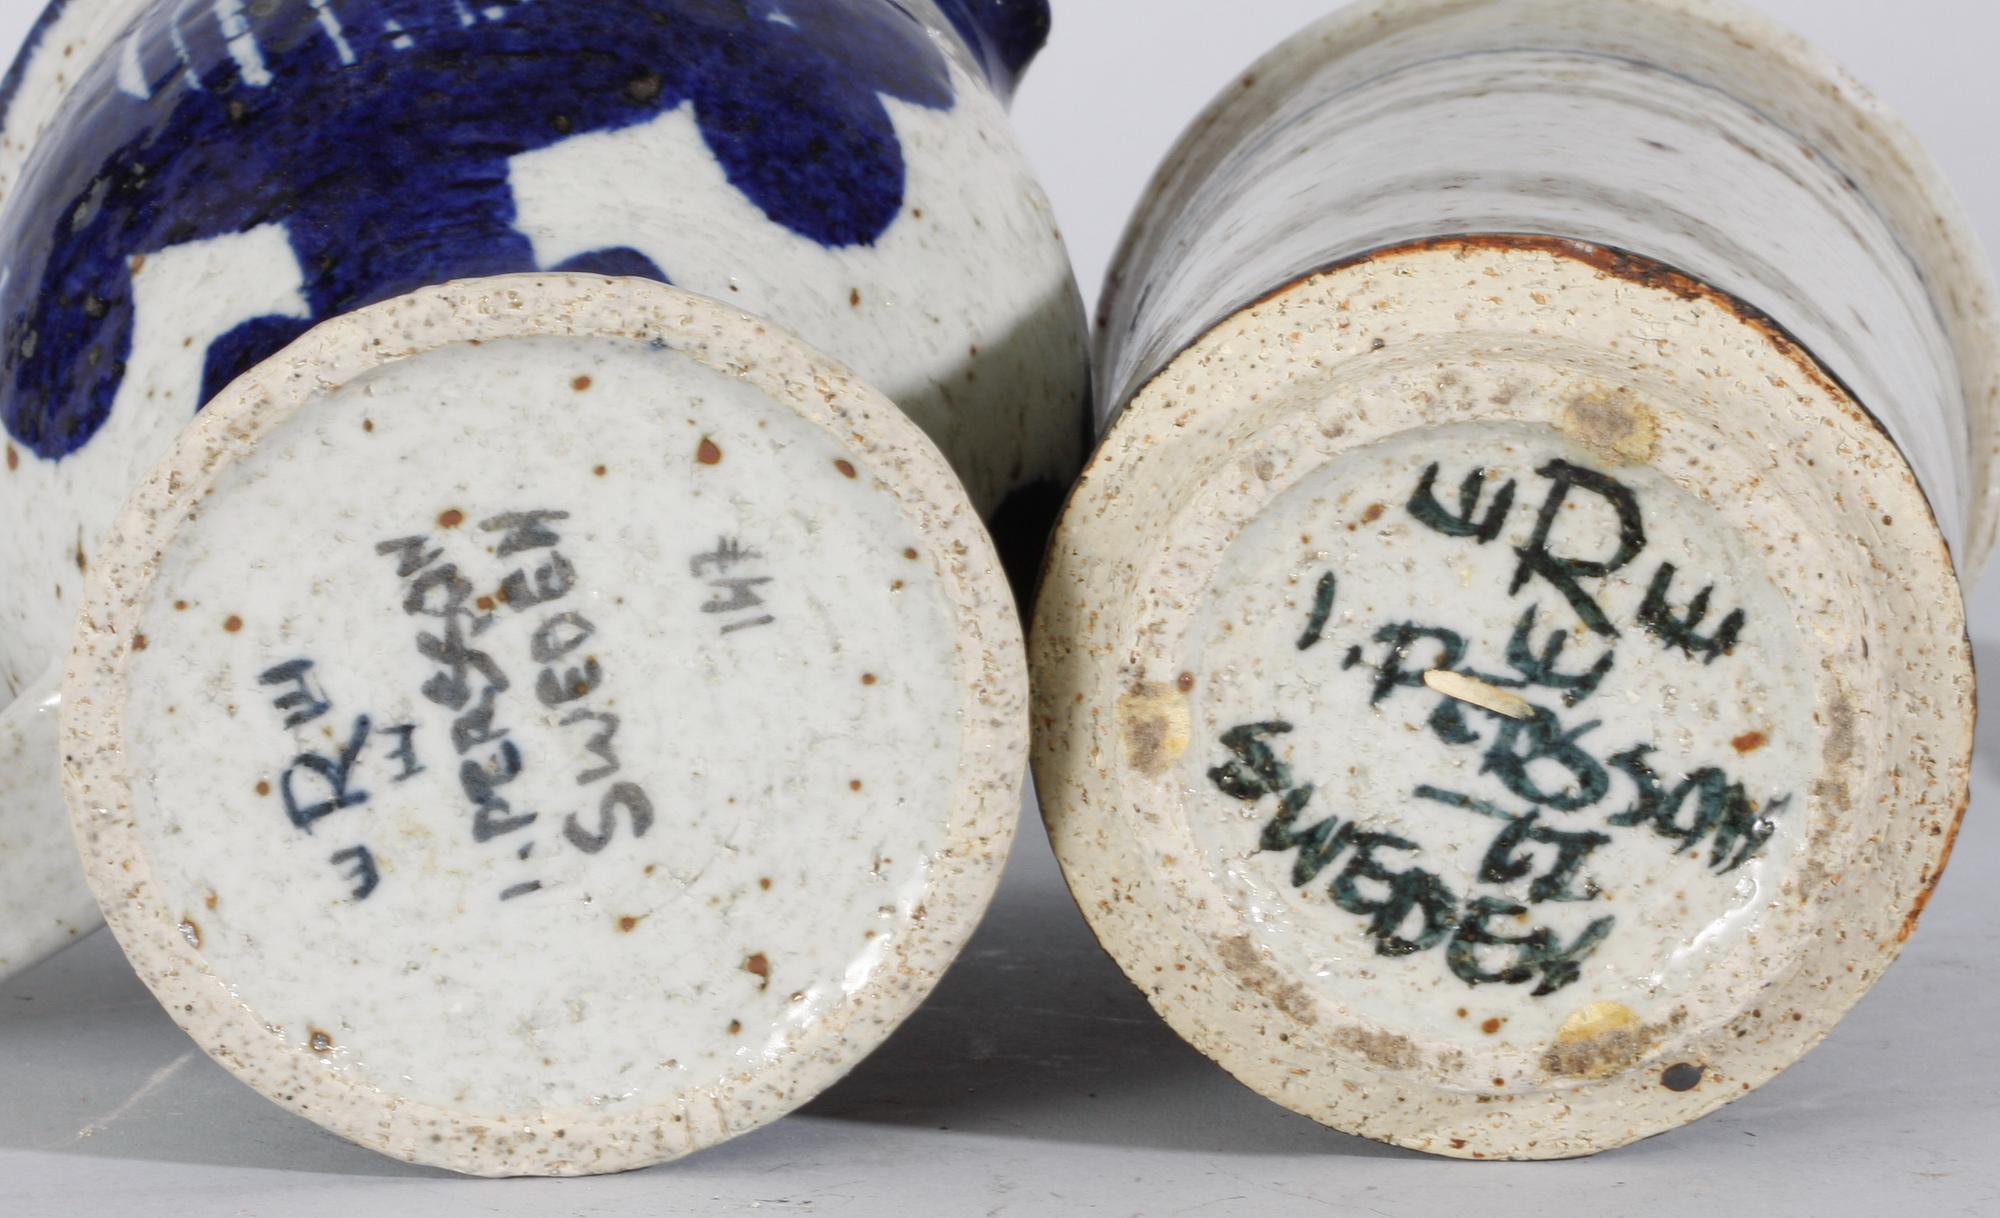 E R E
E
I. PERSSON
SWEDEN
147
E R E
E
I. PERSSON
SWEDEN